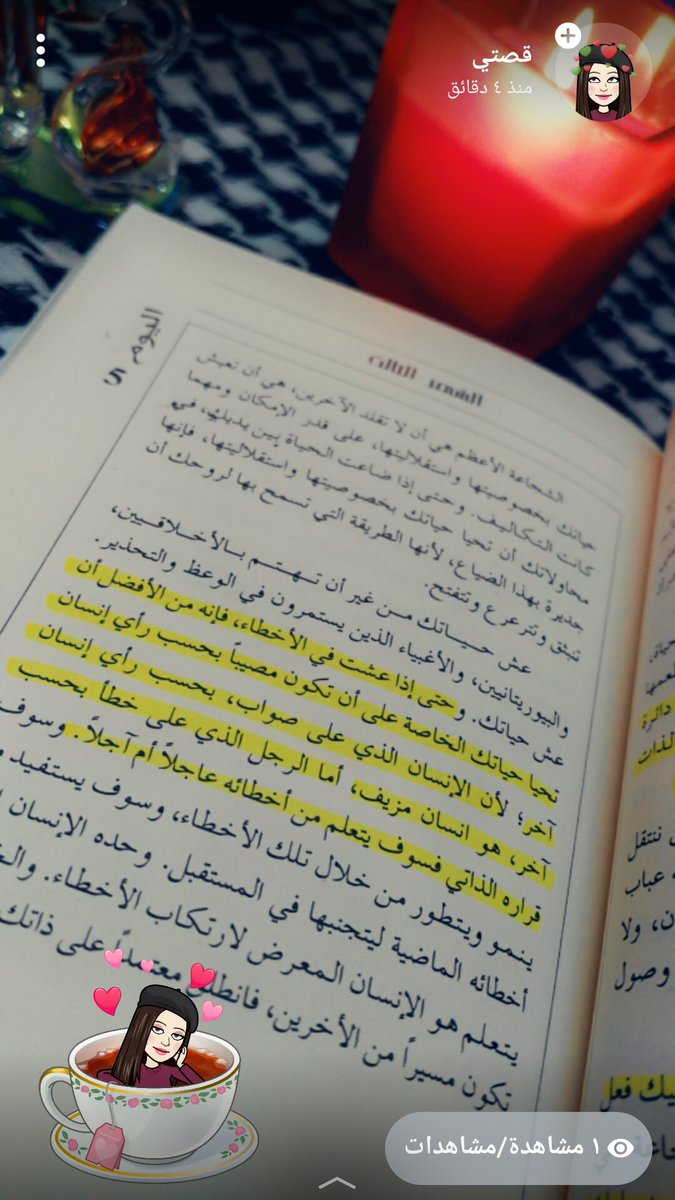 قصتي
منذ ٤ دقائق
اليوم 5
القسم الثالث
الشجاعة الأعظم هي أن لا تقلد الآخرين، هي أن تعيش
حياتك بخصوصيتها واستقلاليتها، على قدر الإمكان ومهما
كانت التكاليف. وحتى إذا ضاعت الحياة بين يديك، في
محاولاتك أن تحيا حياتك بخصوصيتها واستقلاليتها، فإنها
جديرة بهذا الضياع، لأنها الطريقة التي تسمح بها لروحك أن
تنبثق وتترعرع وتتفتح.
عش حياتك من غير أن تهتم بالأخلاقيين،
والبيوريتانيين، والأغبياء الذين يستمرون في الوعظ والتحذير.
عش حياتك. وحتى إذا عشت في الأخطاء، فإنه من الأفضل أن
تحيا حياتك الخاصة على أن تكون مصيباً بحسب رأي إنسان
آخر؛ لأن الإنسان الذي على صواب، بحسب رأي إنسان
آخر، هو انسان مزيف، أما الرجل الذي على خطأ بحسب
قراره الذاتي فسوف يتعلم من أخطائه عاجلاً أم آجلاً. وسوف
ينمو ويتطور من خلال تلك الأخطاء، وسوف يستفيد
أخطائه الماضية ليتجنبها في المستقبل. وحده الإنسان
يتعلم هو الإنسان المعرض لارتكاب الأخطاء.
تكون مسيراً من الأخرين، فانطلق معتمداً على ذاتك
دائرة
الذات
ننتقل
عباب
ن، ولا
وصول
فعل
١ مشاهدة/مشاهدات